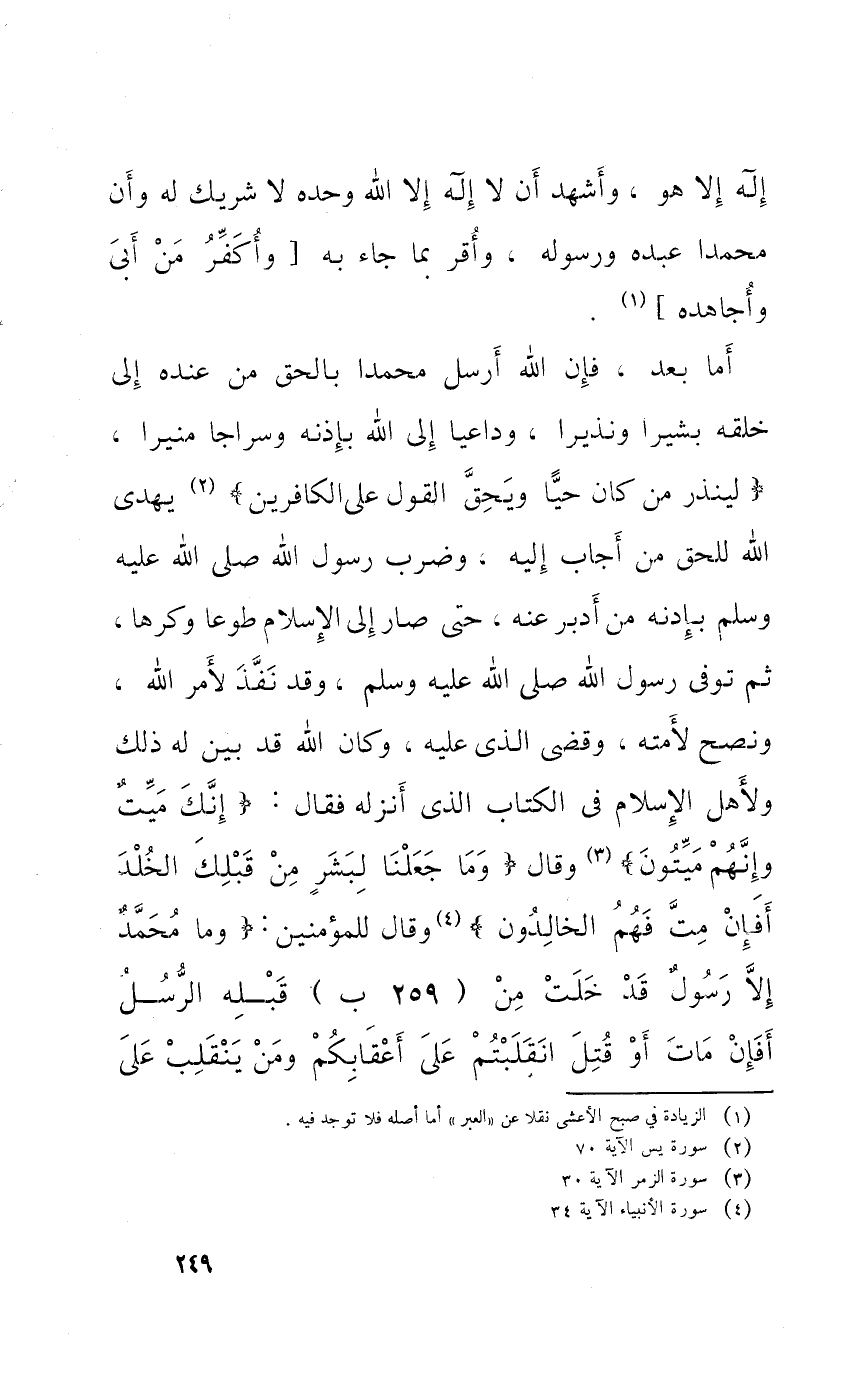 إلٓه إلا هو ، وأَشهد أَن لا إلٓه إلا الله وحده لا شريك له وأَن
محمدا عبده ورسوله ، وأُقر بما جاء به [ وأُكَفِّرُ مَنْ أَبىَ
وأُجاهده ] (١) .
أَما بعد ، فإن الله أَرسل محمدا بالحق من عنده إلى
خلقه بشيرا ونذيرا ، وداعيا إلى الله بإذنه وسراجا منيرا ،
﴿ لينذر من كان حيًّا ويَحِقَّ القول على الكافرين ﴾ (٢) يهدى
الله للحق من أَجاب إليه ، وضرب رسول الله صلى الله عليه
وسلم بإدنه من أَدبر عنه ، حتى صار إلى الإسلام طوعا وكرها ،
ثم توفى رسول الله صلى الله عليه وسلم ، وقد نَفَّذَ لأَمر الله ،
ونصح لأَمته ، وقضى الذى عليه ، وكان الله قد بين له ذلك
ولأَهل الإسلام فى الكتاب الذى أَنزله فقال : ﴿ إنَّكَ مَيِّتٌ
وإنَّهُمْ مَيِّتُونَ ﴾ (٣) وقال ﴿ وَمَا جَعَلْنَا لِبَشَرٍ مِنْ قَبْلِكَ الخُلْدَ
أَفَإِنْ مِتَّ فَهُمُ الخالِدُون ﴾ (٤) وقال للمؤمنين : ﴿ وما مُحَمَّدٌ
إلاَّ رَسُولٌ قَدْ خَلَتْ مِنْ ( ٢٥٩ ب ) قَبْلِه الرُّسُلُ
أَفَإِنْ مَاتَ أَوْ قُتِلَ انَقَلَبْتُمْ عَلَىَ أَعْقَابِكُمْ ومَنْ يَنْقَلِبْ عَلَىَ
(١) الزيادة في صبح الأعشى نقلا عن «العبر» أما أصله فلا توجد فيه .
(٢) سورة يس الآية ٧٠
(٣) سورة الزمر الآية ٣٠
(٤) سورة الأنبياء الآية ٣٤
٢٤٩